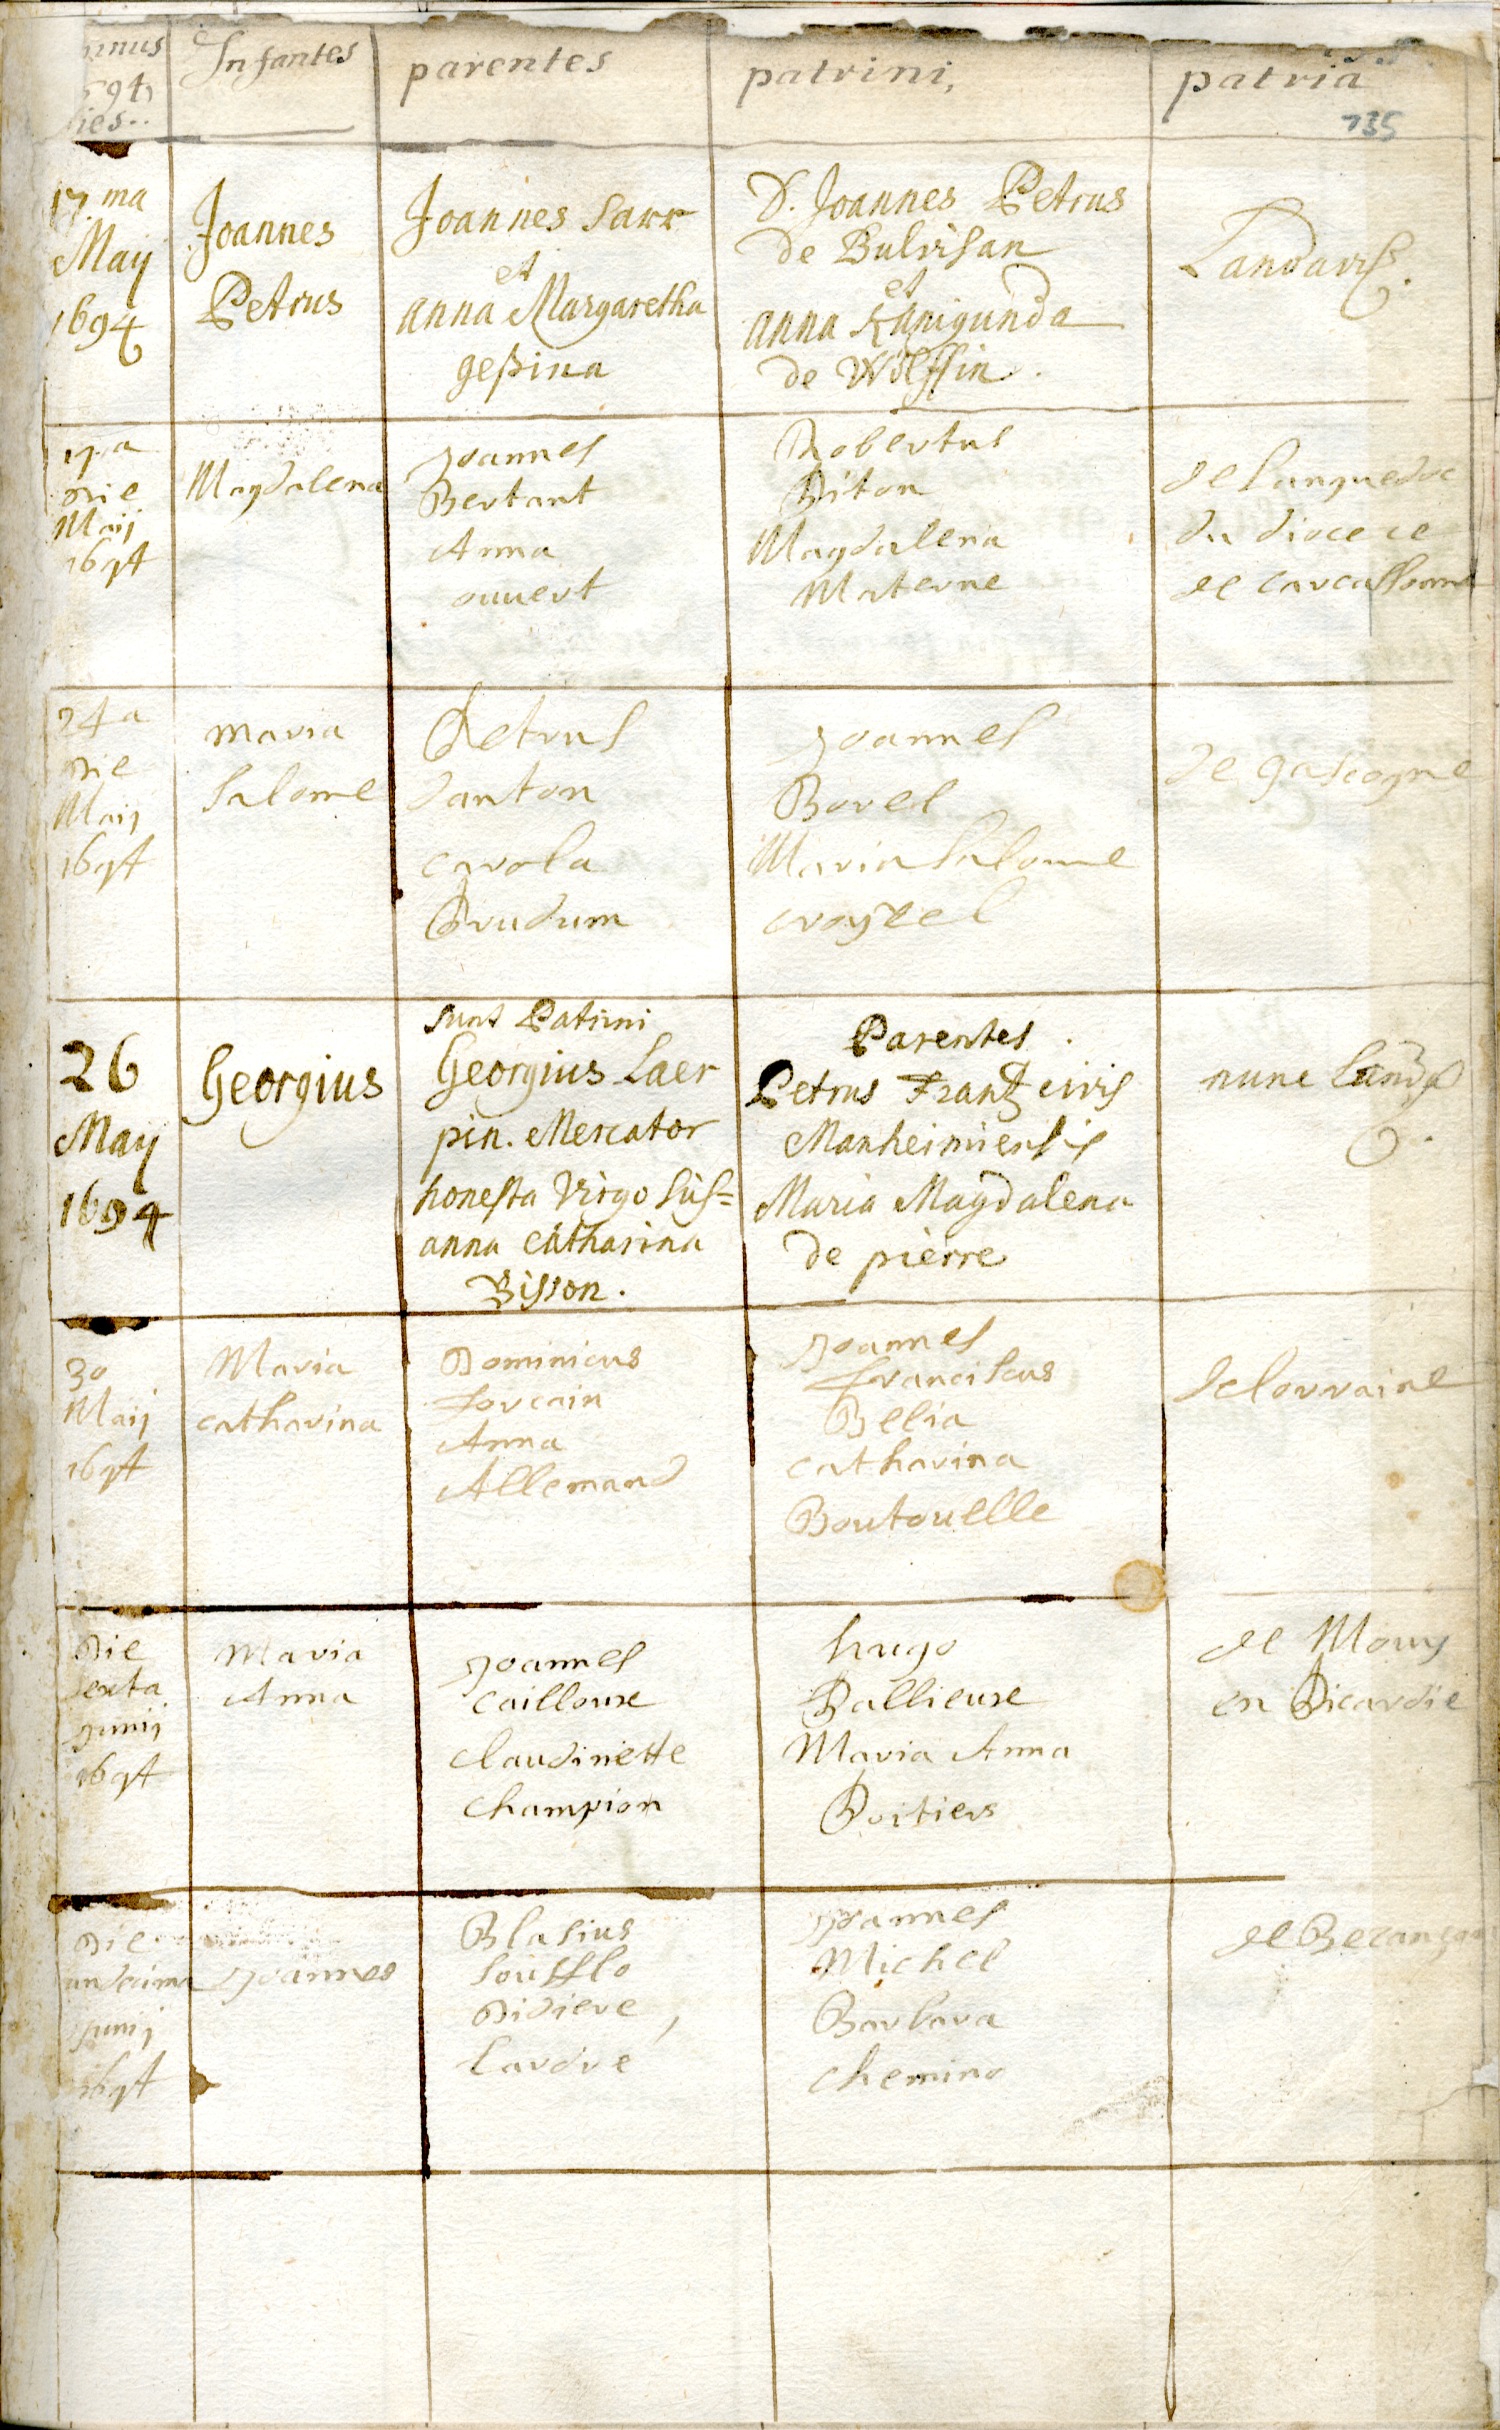 Infantes
parentes
patrini,
patria
735
17.ma
May
1694
Joannes
Petrus
Joannes Sarr
et
anna Margaretha
geßina
D. Joannes Petrus
de Bulvisan
et
anna Kunigunda
de Wölffin.
17.a
Die
Maij
1694
Magdalena
Joannes
Bertant
Anna
ouuert
Robertus
Biton
Magdalena
Materne
de Languedoc
du diocece
de carcassonne
24a
Die
Maij
1694
maria
Salome
Petrus
danton
carola
Prudum
Joannes
Borel
Maria Salome
croyzel
de gascogne
26
May
1694
Georgius
sunt Patrini
Georgius Laer
pin. Mercator
honesta Virgo Sus=
anna Catharina
Bisson.
Parentes
Petrus Frantz civis
Manheimiensis
Maria Magdalena
de pierre
nunc
30
Maij
1694
Maria
catharina
Dominicus
forcain
Anna
Allemand
Joannes
franciscus
Bellia
catharina
Boutouelle
de lorraine
Die
sexta
Junij
1694
Maria
Anna
Joannes
Cailloux
Claudinette
Champion
hugo
Ballieuxe
Maria Anna
Poitiers
de Mouy
en Picardie
Die
undecima
Junij
1694
Joannes
Blasius
Soufflo
Didiere,
Lardre
Joannes
Michel
Barbara
chemino
de Bezançon